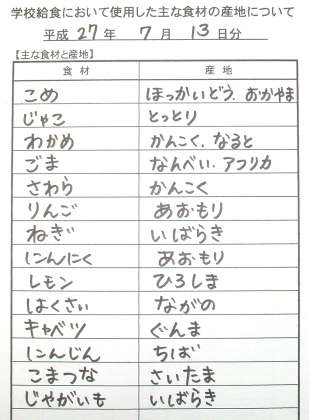 学校給食において使用した主な食材の産地について
平成 27 年 7 月 13 日分
【主な食材と産地】
食材 産地
こめ ほっかいどう、おかやま
じゃこ とっとり
わかめ かんこく、なると
ごま なんべい、アフリカ
さわら かんこく
りんご あおもり
ねぎ いばらき
にんにく あおもり
レモン ひろしま
はくさい ながの
キャベツ ぐんま
にんじん ちば
こまつな さいたま
じゃがいも いばらき